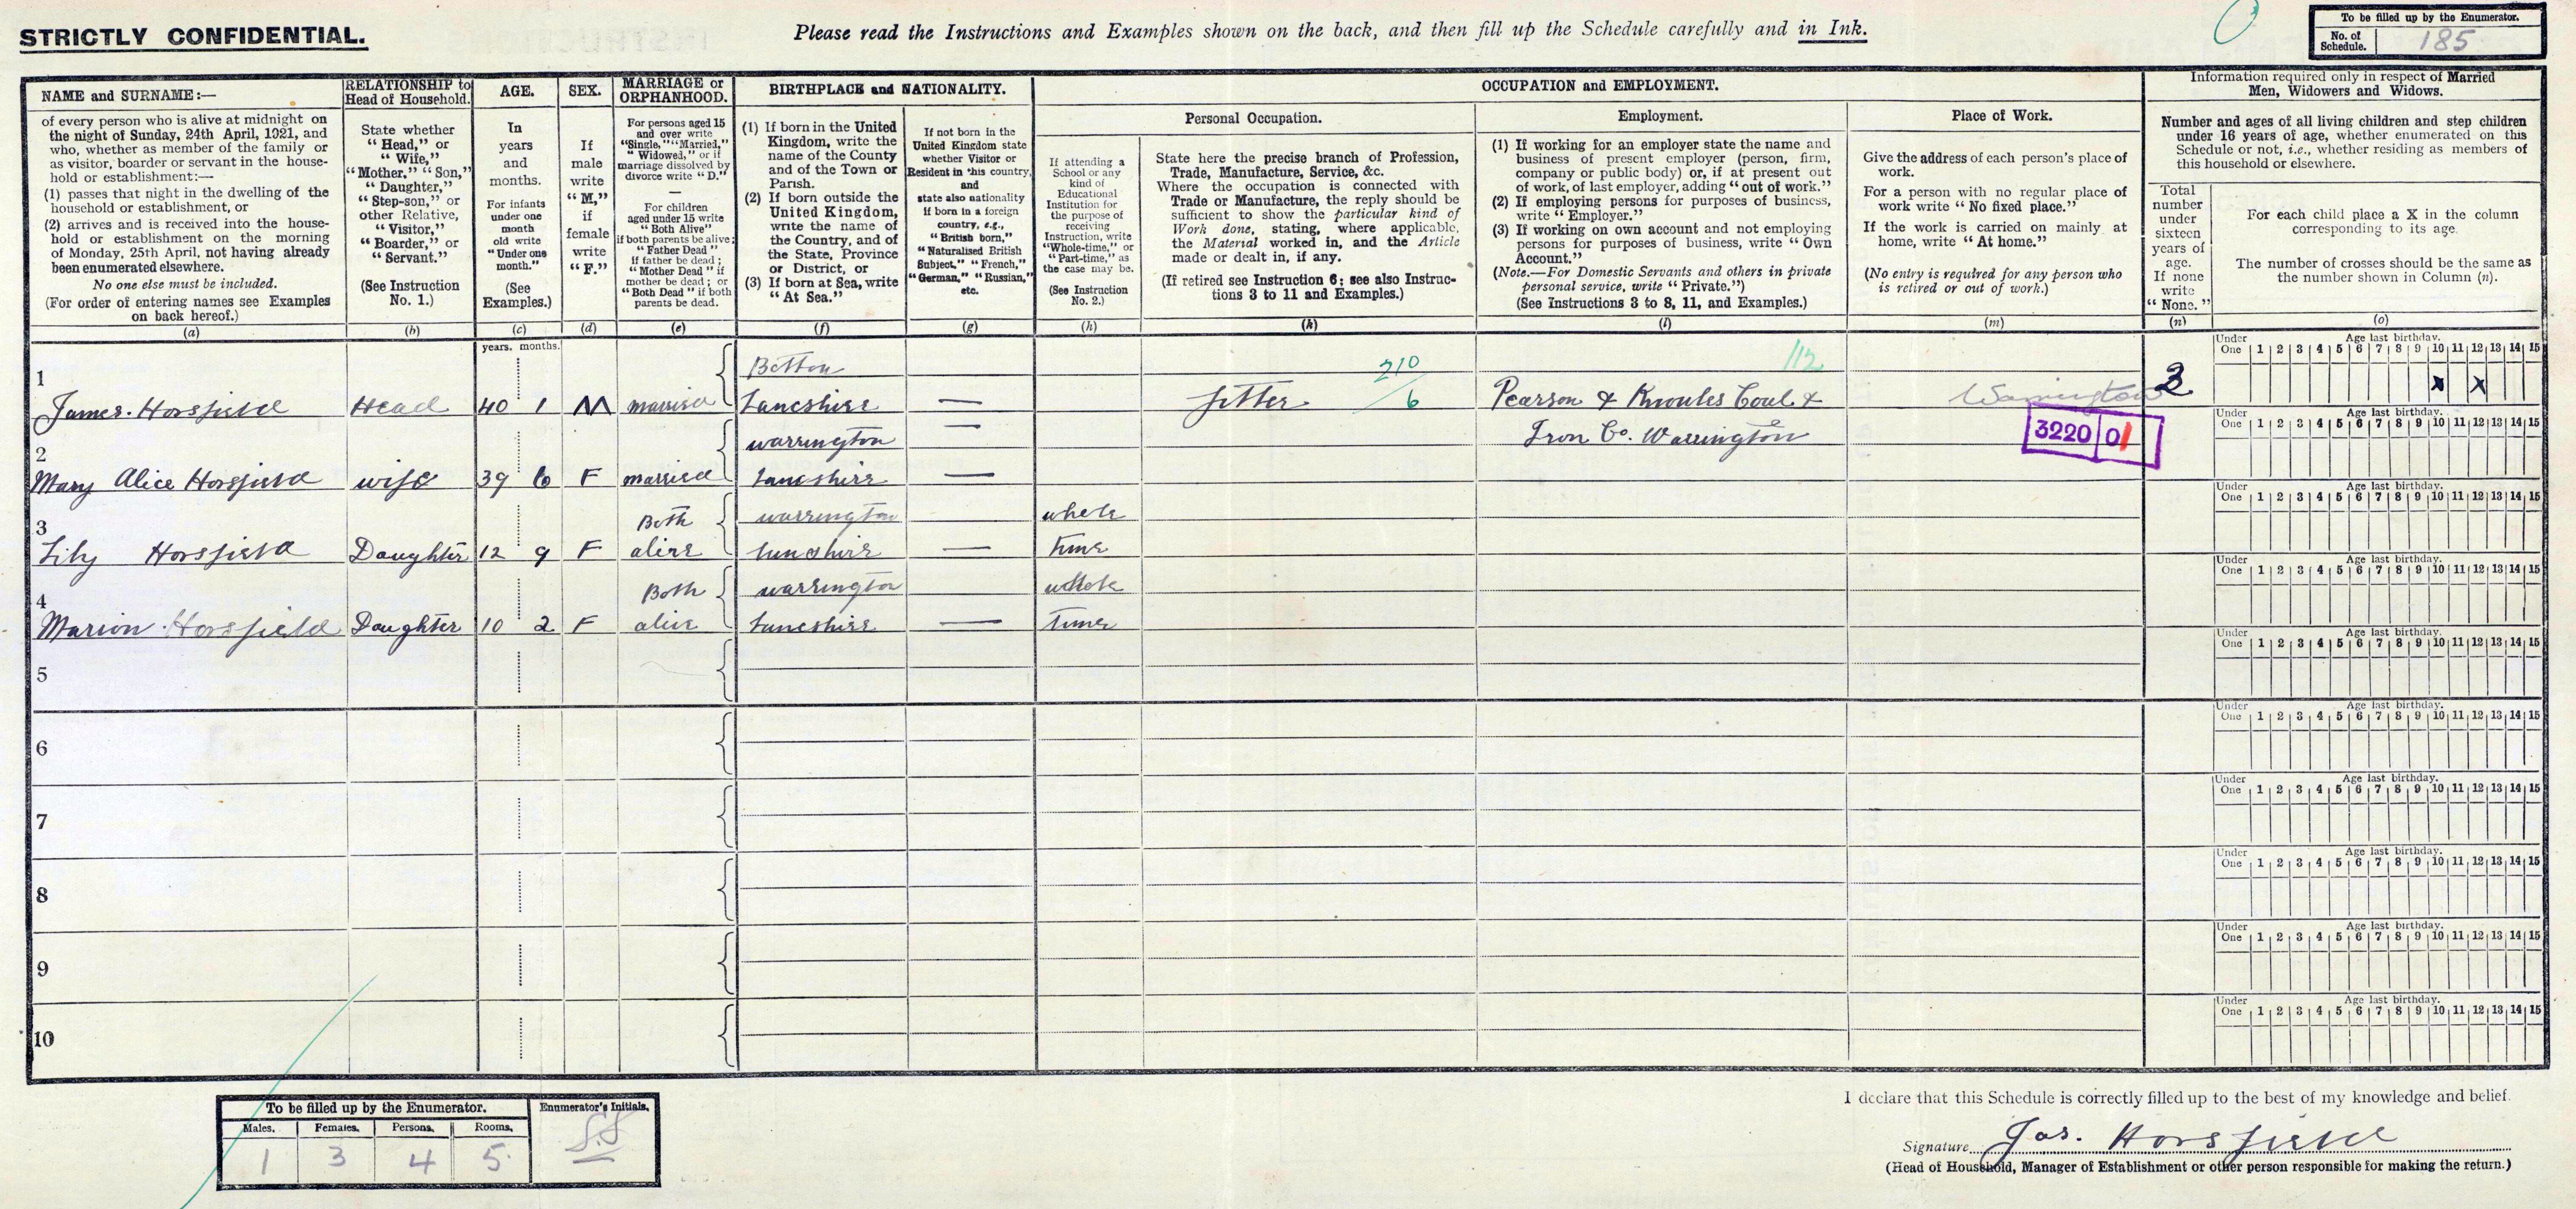 STRICTLY CONFIDENTIAL.
Please read the Instructions and Examples shown on the back, and then fill up the Schedule carefully and in Ink.
To be filled up by the Enumerator.
No. of Schedule. 185
NAME and SURNAME:—
of every person who is alive at midnight on
the night of Sunday, 24th April, 1921, and
who, whether as member of the family or
as visitor, boarder or servant in the house-
hold or establishment:—
(1) passes that night in the dwelling of the
household or establishment, or
(2) arrives and is received into the house-
hold or establishment on the morning
of Monday, 25th April, not having already
been enumerated elsewhere.
No one else must be included.
(For order of entering names see Examples
on back hereof.)
(a)
RELATIONSHIP to
Head of Household.
State whether
"Head," or
"Wife,"
"Mother," "Son,"
"Daughter,"
"Step-son," or
other Relative,
"Visitor,"
"Boarder," or
"Servant."
(See Instruction
No. 1.)
(b)
AGE.
In
years
and
months.
For infants
under one
month
old write
"Under one
month."
(See
Examples.)
(c)
SEX.
If
male
write
"M,"
if
female
write
"F."
(d)
MARRIAGE or
ORPHANHOOD.
For persons aged 15
and over write
"Single," "Married,"
"Widowed," or if
marriage dissolved by
divorce write "D."
For children
aged under 15 write
"Both Alive"
if both parents be alive;
"Father Dead"
if father be dead;
"Mother Dead" if
mother be dead; or
"Both Dead" if both
parents be dead.
(e)
BIRTHPLACE and NATIONALITY.
(1) If born in the United
Kingdom, write the
name of the County
and of the Town or
Parish.
(2) If born outside the
United Kingdom,
write the name of
the Country, and of
the State, Province
or District, or
(3) If born at Sea, write
"At Sea."
(f)
If not born in the
United Kingdom state
whether Visitor or
Resident in this country,
and
state also nationality
if born in a foreign
country, e.g.,
"British born,"
"Naturalised British
Subject," "French,"
"German," "Russian,"
etc.
(g)
OCCUPATION and EMPLOYMENT.
Personal Occupation.
If attending a
School or any
kind of
Educational
Institution for
the purpose of
receiving
Instruction, write
"Whole-time," or
"Part-time," as
the case may be.
(See Instruction
No. 2.)
(h)
State here the precise branch of Profession,
Trade, Manufacture, Service, &c.
Where the occupation is connected with
Trade or Manufacture, the reply should be
sufficient to show the particular kind of
Work done, stating, where applicable,
the Material worked in, and the Article
made or dealt in, if any.
(If retired see Instruction 6; see also Instruc-
tions 3 to 11 and Examples.)
(k)
Employment.
(1) If working for an employer state the name and
business of present employer (person, firm,
company or public body) or, if at present out
of work, of last employer, adding "out of work."
(2) If employing persons for purposes of business,
write "Employer."
(3) If working on own account and not employing
persons for purposes of business, write "Own
Account."
(Note.—For Domestic Servants and others in private
personal service, write "Private.")
(See Instructions 3 to 8, 11, and Examples.)
(l)
Place of Work.
Give the address of each person's place of
work.
For a person with no regular place of
work write "No fixed place."
If the work is carried on mainly at
home, write "At home."
(No entry is required for any person who
is retired or out of work.)
(m)
Information required only in respect of Married
Men, Widowers and Widows.
Number and ages of all living children and step children
under 16 years of age, whether enumerated on this
Schedule or not, i.e., whether residing as members of
this household or elsewhere.
Total
number
under
sixteen
years of
age.
If none
write
"None."
(n)
For each child place a X in the column
corresponding to its age.
The number of crosses should be the same as
the number shown in Column (n).
(o)
years. months.
Under One Age last birthday. 1 2 3 4 5 6 7 8 9 10 11 12 13 14 15
Bolton 210 112
1 James Horsfield Head 40 1 M married Lancshire — fitter 6 Pearson & Knowles Coal & Warrington 2 x x
Under One Age last birthday. 1 2 3 4 5 6 7 8 9 10 11 12 13 14 15
warrington — Iron Co. Warrington 3220 01
2 Mary Alice Horsfield wife 39 6 F married Lancshire —
Under One Age last birthday. 1 2 3 4 5 6 7 8 9 10 11 12 13 14 15
Both warrington whole
3 Lily Horsfield Daughter 12 9 F alive Lancshire — time
Under One Age last birthday. 1 2 3 4 5 6 7 8 9 10 11 12 13 14 15
Both warrington whole
4 Marion Horsfield Daughter 10 2 F alive Lancshire — Time
Under One Age last birthday. 1 2 3 4 5 6 7 8 9 10 11 12 13 14 15
5
Under One Age last birthday. 1 2 3 4 5 6 7 8 9 10 11 12 13 14 15
6
Under One Age last birthday. 1 2 3 4 5 6 7 8 9 10 11 12 13 14 15
7
Under One Age last birthday. 1 2 3 4 5 6 7 8 9 10 11 12 13 14 15
8
Under One Age last birthday. 1 2 3 4 5 6 7 8 9 10 11 12 13 14 15
9
Under One Age last birthday. 1 2 3 4 5 6 7 8 9 10 11 12 13 14 15
10
To be filled up by the Enumerator.
Enumerator's Initials.
Males. Females. Persons. Rooms.
1 3 4 5
I declare that this Schedule is correctly filled up to the best of my knowledge and belief.
Signature Jas. Horsfield
(Head of Household, Manager of Establishment or other person responsible for making the return.)